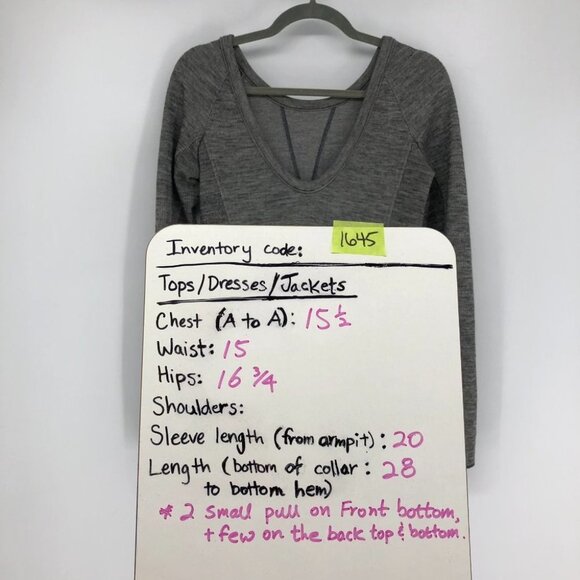 Inventory code: 1645
Tops/Dresses/Jackets
Chest (A to A): 15 ½
Waist: 15
Hips: 16 ¾
Shoulders:
Sleeve length (from armpit): 20
Length (bottom of collar: 28
to bottom hem)
* 2 small pull on Front bottom,
+ few on the back top & bottom.